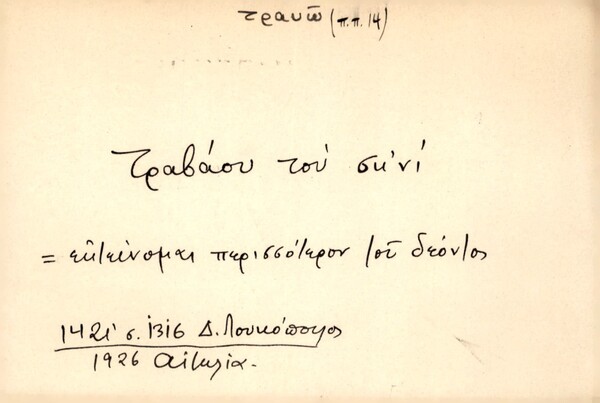 τραυῶ (π.π. 14)
Τραβάου τού σκ'νί
= ἐκτείνομαι περισσότερον τοῦ δέοντος
1421 σ. 1316 Δ. Λουκόπουλος
1926 Αἰτωλία.